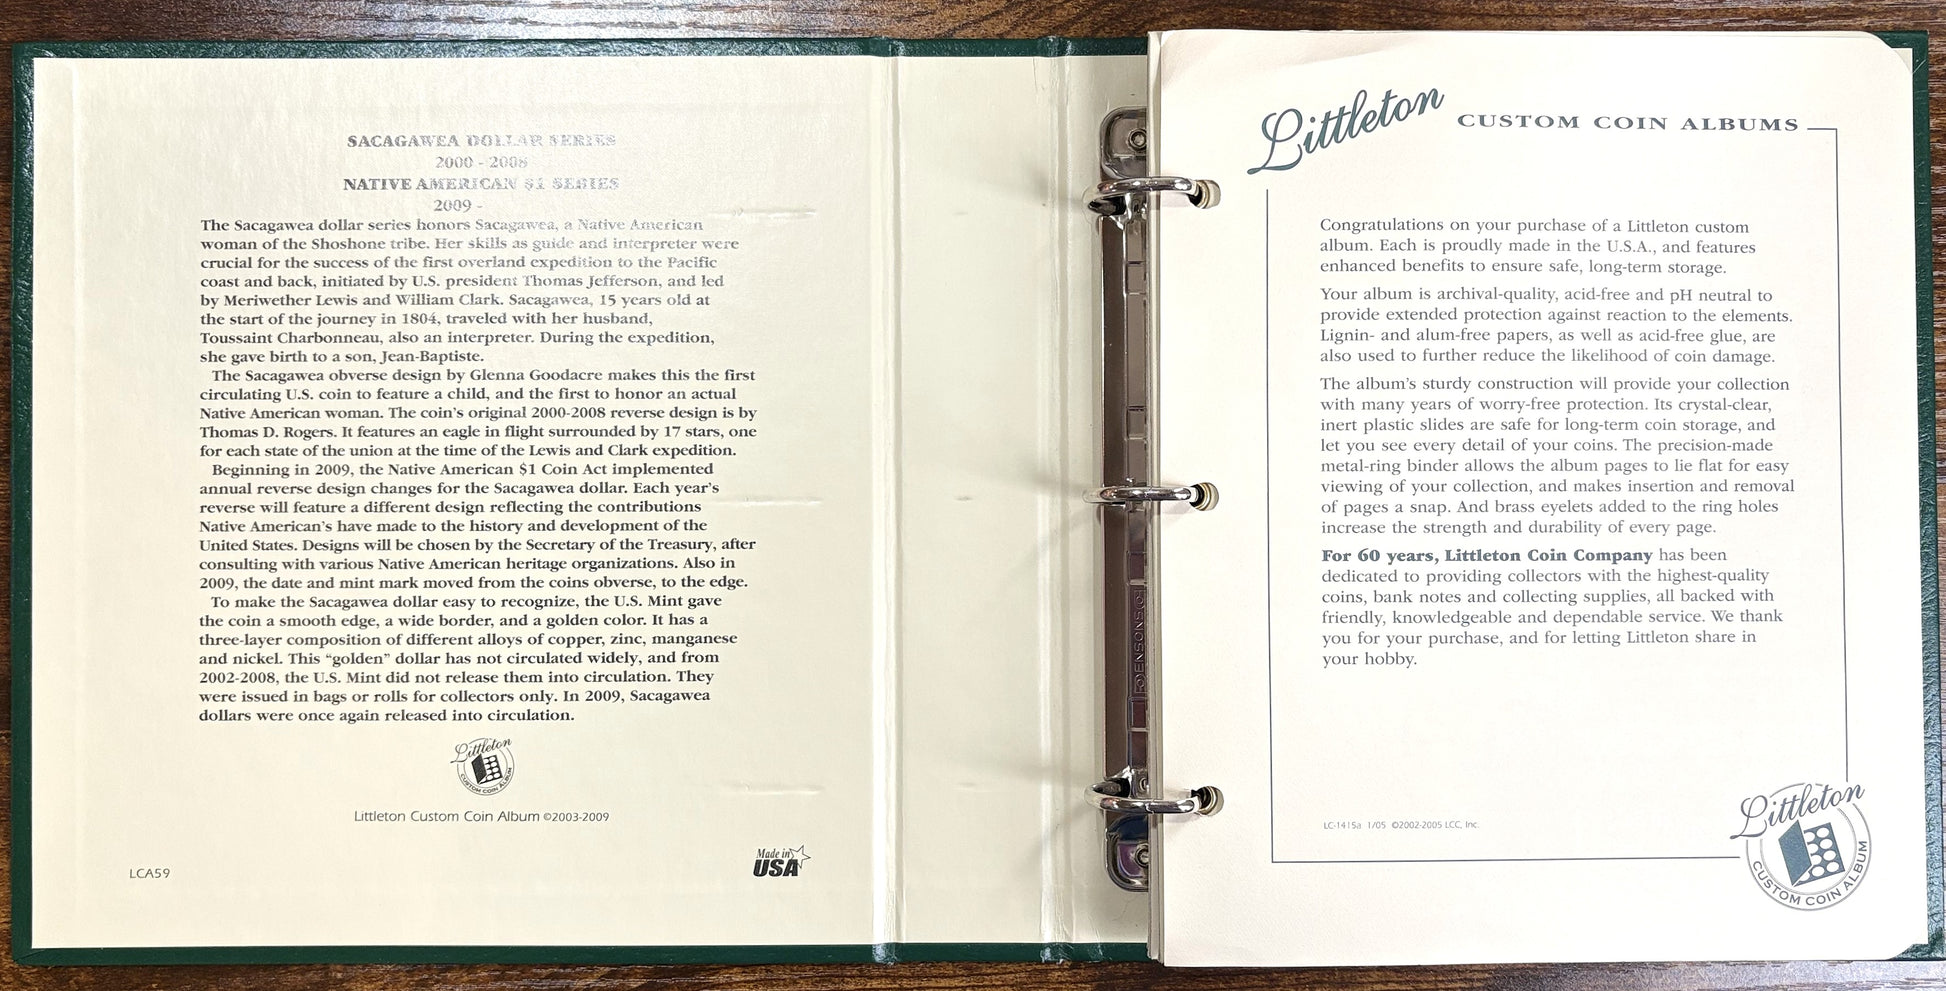 SACAGAWEA DOLLAR SERIES
2000 - 2008
NATIVE AMERICAN $1 SERIES
2009 -
The Sacagawea dollar series honors Sacagawea, a Native American
woman of the Shoshone tribe. Her skills as guide and interpreter were
crucial for the success of the first overland expedition to the Pacific
coast and back, initiated by U.S. president Thomas Jefferson, and led
by Meriwether Lewis and William Clark. Sacagawea, 15 years old at
the start of the journey in 1804, traveled with her husband,
Toussaint Charbonneau, also an interpreter. During the expedition,
she gave birth to a son, Jean-Baptiste.
The Sacagawea obverse design by Glenna Goodacre makes this the first
circulating U.S. coin to feature a child, and the first to honor an actual
Native American woman. The coin's original 2000-2008 reverse design is by
Thomas D. Rogers. It features an eagle in flight surrounded by 17 stars, one
for each state of the union at the time of the Lewis and Clark expedition.
Beginning in 2009, the Native American $1 Coin Act implemented
annual reverse design changes for the Sacagawea dollar. Each year's
reverse will feature a different design reflecting the contributions
Native American's have made to the history and development of the
United States. Designs will be chosen by the Secretary of the Treasury, after
consulting with various Native American heritage organizations. Also in
2009, the date and mint mark moved from the coins obverse, to the edge.
To make the Sacagawea dollar easy to recognize, the U.S. Mint gave
the coin a smooth edge, a wide border, and a golden color. It has a
three-layer composition of different alloys of copper, zinc, manganese
and nickel. This “golden” dollar has not circulated widely, and from
2002-2008, the U.S. Mint did not release them into circulation. They
were issued in bags or rolls for collectors only. In 2009, Sacagawea
dollars were once again released into circulation.
Littleton
CUSTOM COIN ALBUM
Littleton Custom Coin Album ©2003-2009
Made in
USA
LCA59
Littleton CUSTOM COIN ALBUMS
Congratulations on your purchase of a Littleton custom
album. Each is proudly made in the U.S.A., and features
enhanced benefits to ensure safe, long-term storage.
Your album is archival-quality, acid-free and pH neutral to
provide extended protection against reaction to the elements.
Lignin- and alum-free papers, as well as acid-free glue, are
also used to further reduce the likelihood of coin damage.
The album's sturdy construction will provide your collection
with many years of worry-free protection. Its crystal-clear,
inert plastic slides are safe for long-term coin storage, and
let you see every detail of your coins. The precision-made
metal-ring binder allows the album pages to lie flat for easy
viewing of your collection, and makes insertion and removal
of pages a snap. And brass eyelets added to the ring holes
increase the strength and durability of every page.
For 60 years, Littleton Coin Company has been
dedicated to providing collectors with the highest-quality
coins, bank notes and collecting supplies, all backed with
friendly, knowledgeable and dependable service. We thank
you for your purchase, and for letting Littleton share in
your hobby.
LC-1415a 1/05 ©2002-2005 LCC, Inc.
Littleton
CUSTOM COIN ALBUM